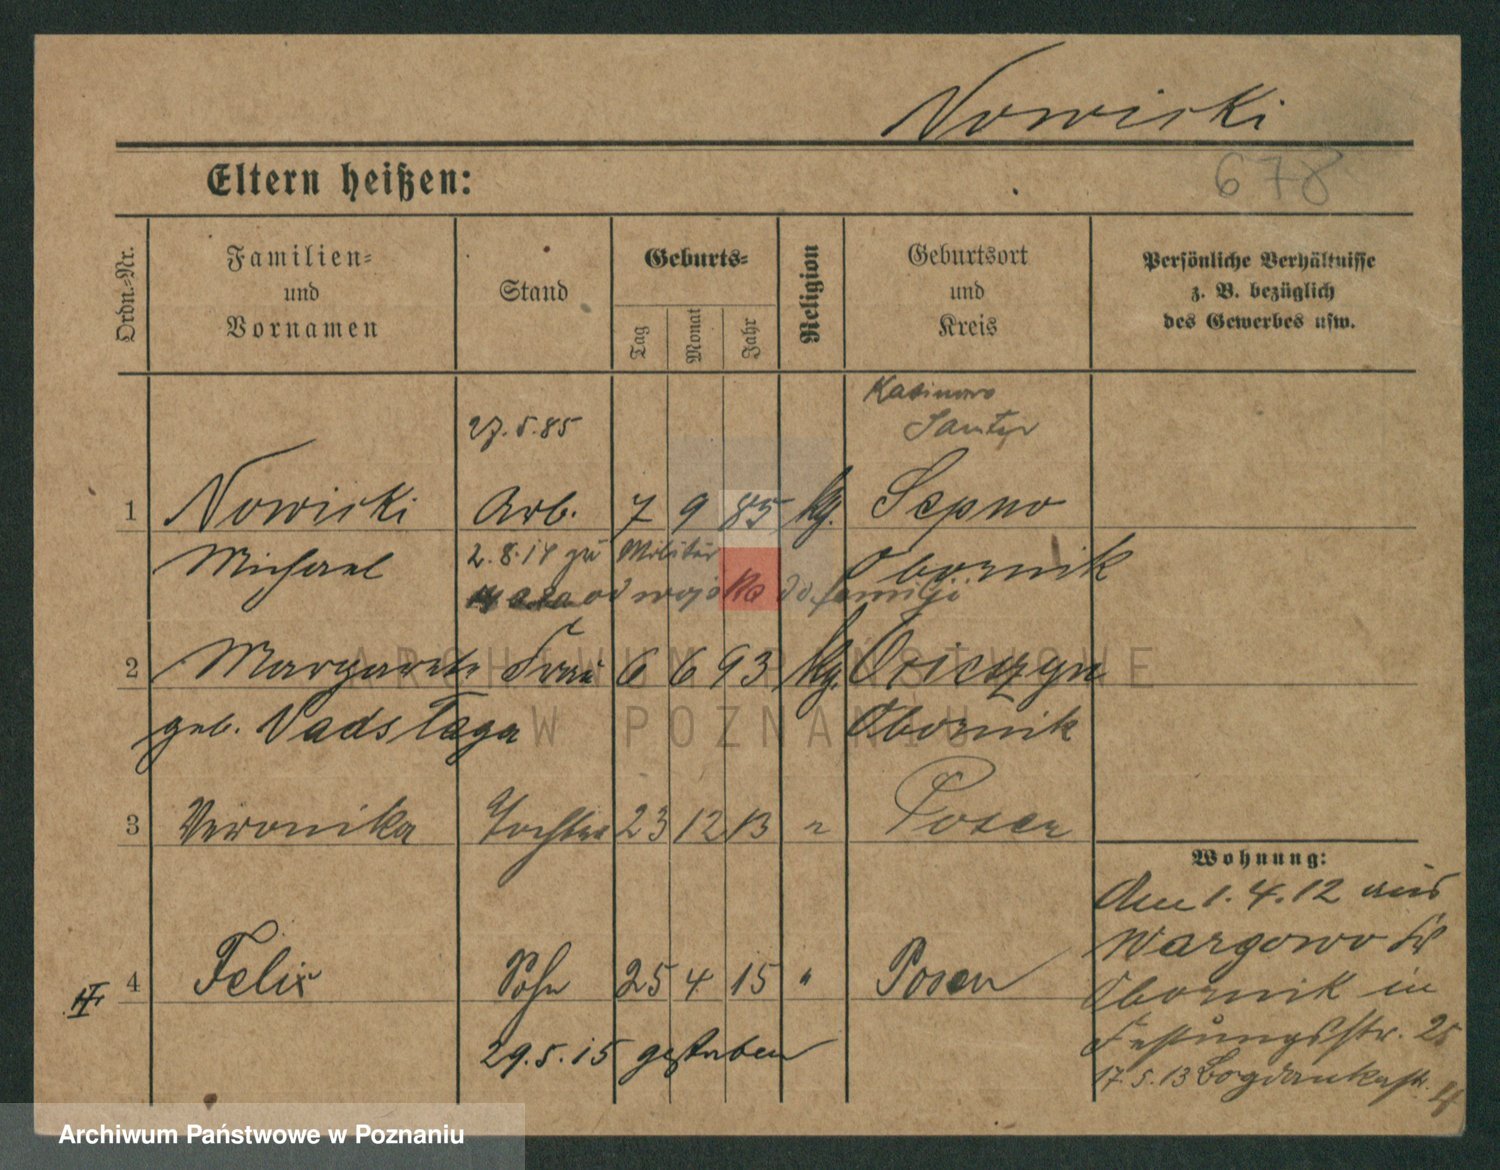 Nowicki
678
Eltern heißen:
Ordn.-Nr.
Familien-
und
Vornamen
Stand
Geburts-
Tag
Monat
Jahr
Religion
Geburtsort
und
Kreis
Persönliche Verhältnisse
z. B. bezüglich
des Gewerbes usw.
27.5.85
Samter
1 Nowicki Arb. 7 9 85 kg. Sepno
Michael 2.8.14 zu Militär Obornik
od wojska do familji
2 Margarete Frau 6 6 93 kg.
geb. Obornik
3 Veronika Tochter 23 12 13 " Posen
Wohnung:
4 Felix Sohn 25 4 15 " Posen
29.5.15 gestorben
Am 1.4.12 aus
Wargowo Kr
Obornik in
Festungsstr. 25
17.5.13 Bogdankastr. 4
ARCHIWUM PAŃSTWOWE
W POZNANIU
Archiwum Państwowe w Poznaniu